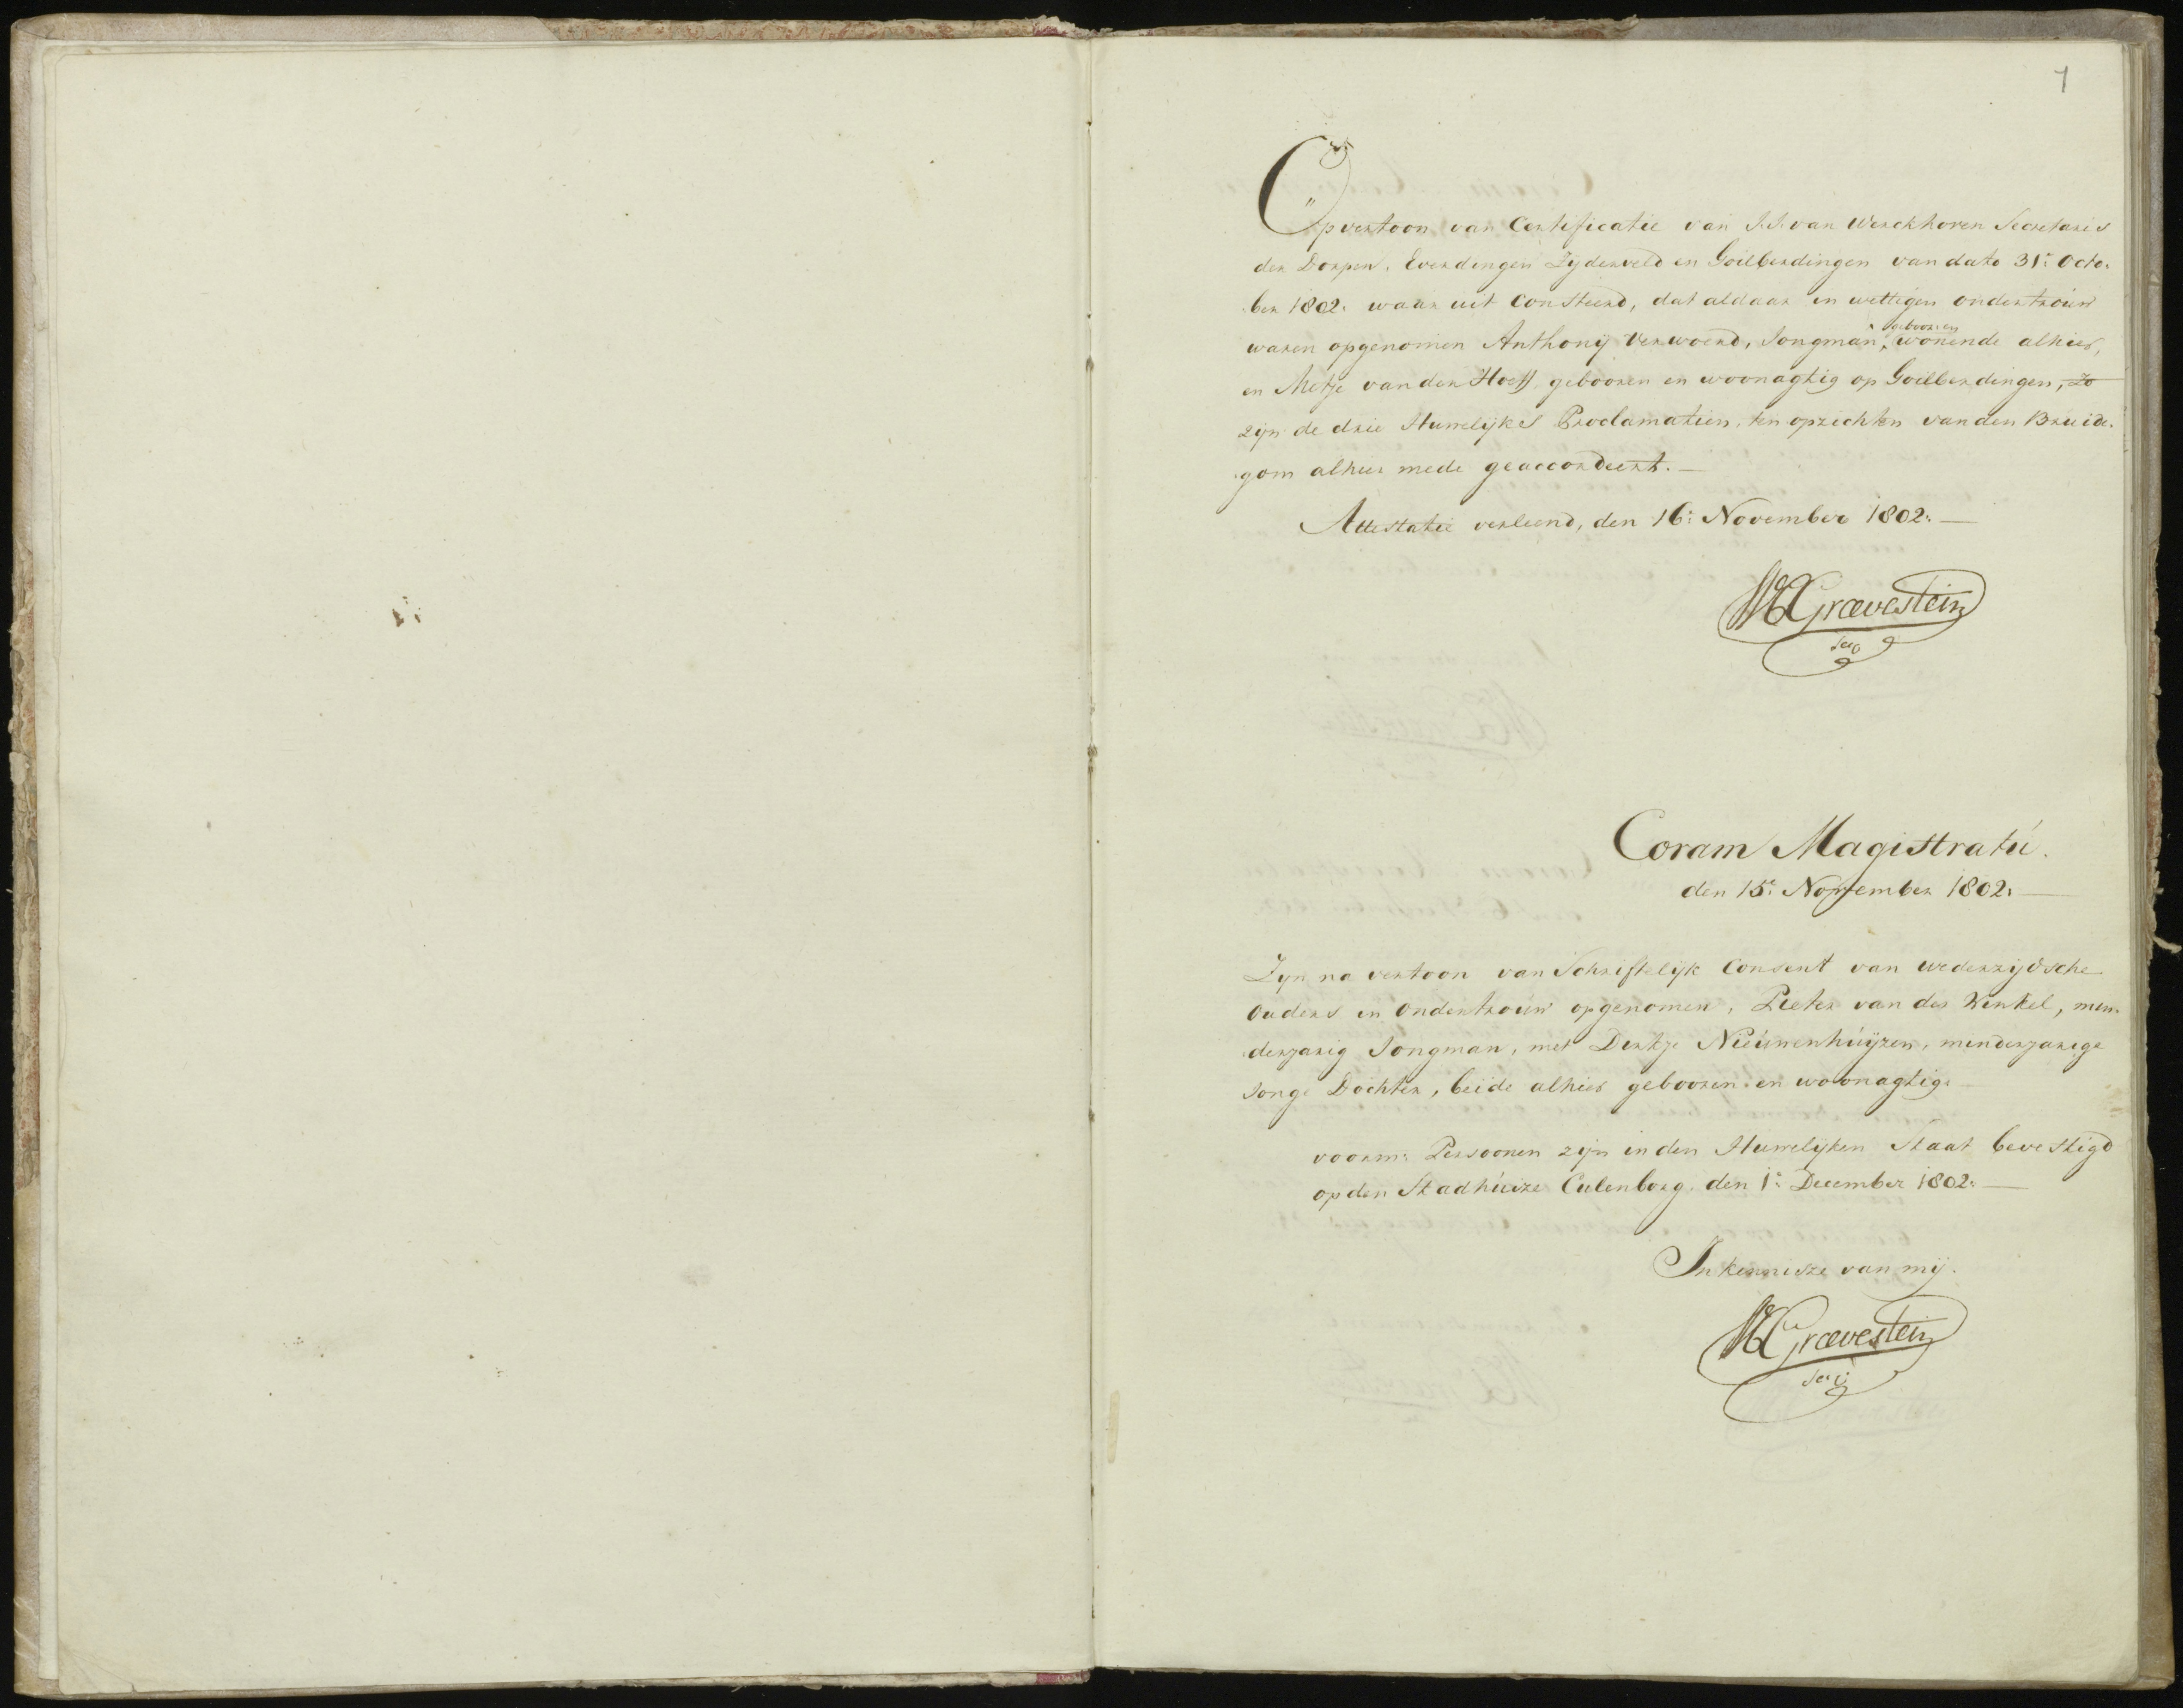 1
Op vertoon van Certificatie van J. J. van Werckhoven Secretaris
der Dorpen, Everdingen Zyderveld en Goilberdingen van dato 31e Octo-
ber 1802. waar uit Consteerd, dat aldaar in wettigen ondertrouw
waren opgenomen Anthonij Verwoerd, Jongman, geboren wonende alhier,
en Metje van der Hoeff gebooren en woonagtig op Goilberdingen, zo
zijn de drie Huwelijkes Proclamatien, ten opzichten van den Bruide-
gom alhier mede geaccordeert.—
Attestatie verleend, den 16e November 1802.—
Grævestein
Secs
Coram Magistratú.
den 15e November 1802.—
Zyn na vertoon van Schriftelijk Consent van wederzijdsche
Ouders in Ondertrouw opgenomen, Pieter van der Winkel, min-
derjarig Jongman, met Dirkje Nieúwenhúijzen, minderjarige
Jonge Dochter, beide alhier gebooren en woonagtig.
voorm: Persoonen zijn in den Huwelijken Staat bevestigd
op den Stadhúize Culenborg den 1e December 1802.—
In kennisze van mij.
Grævestein
Secs